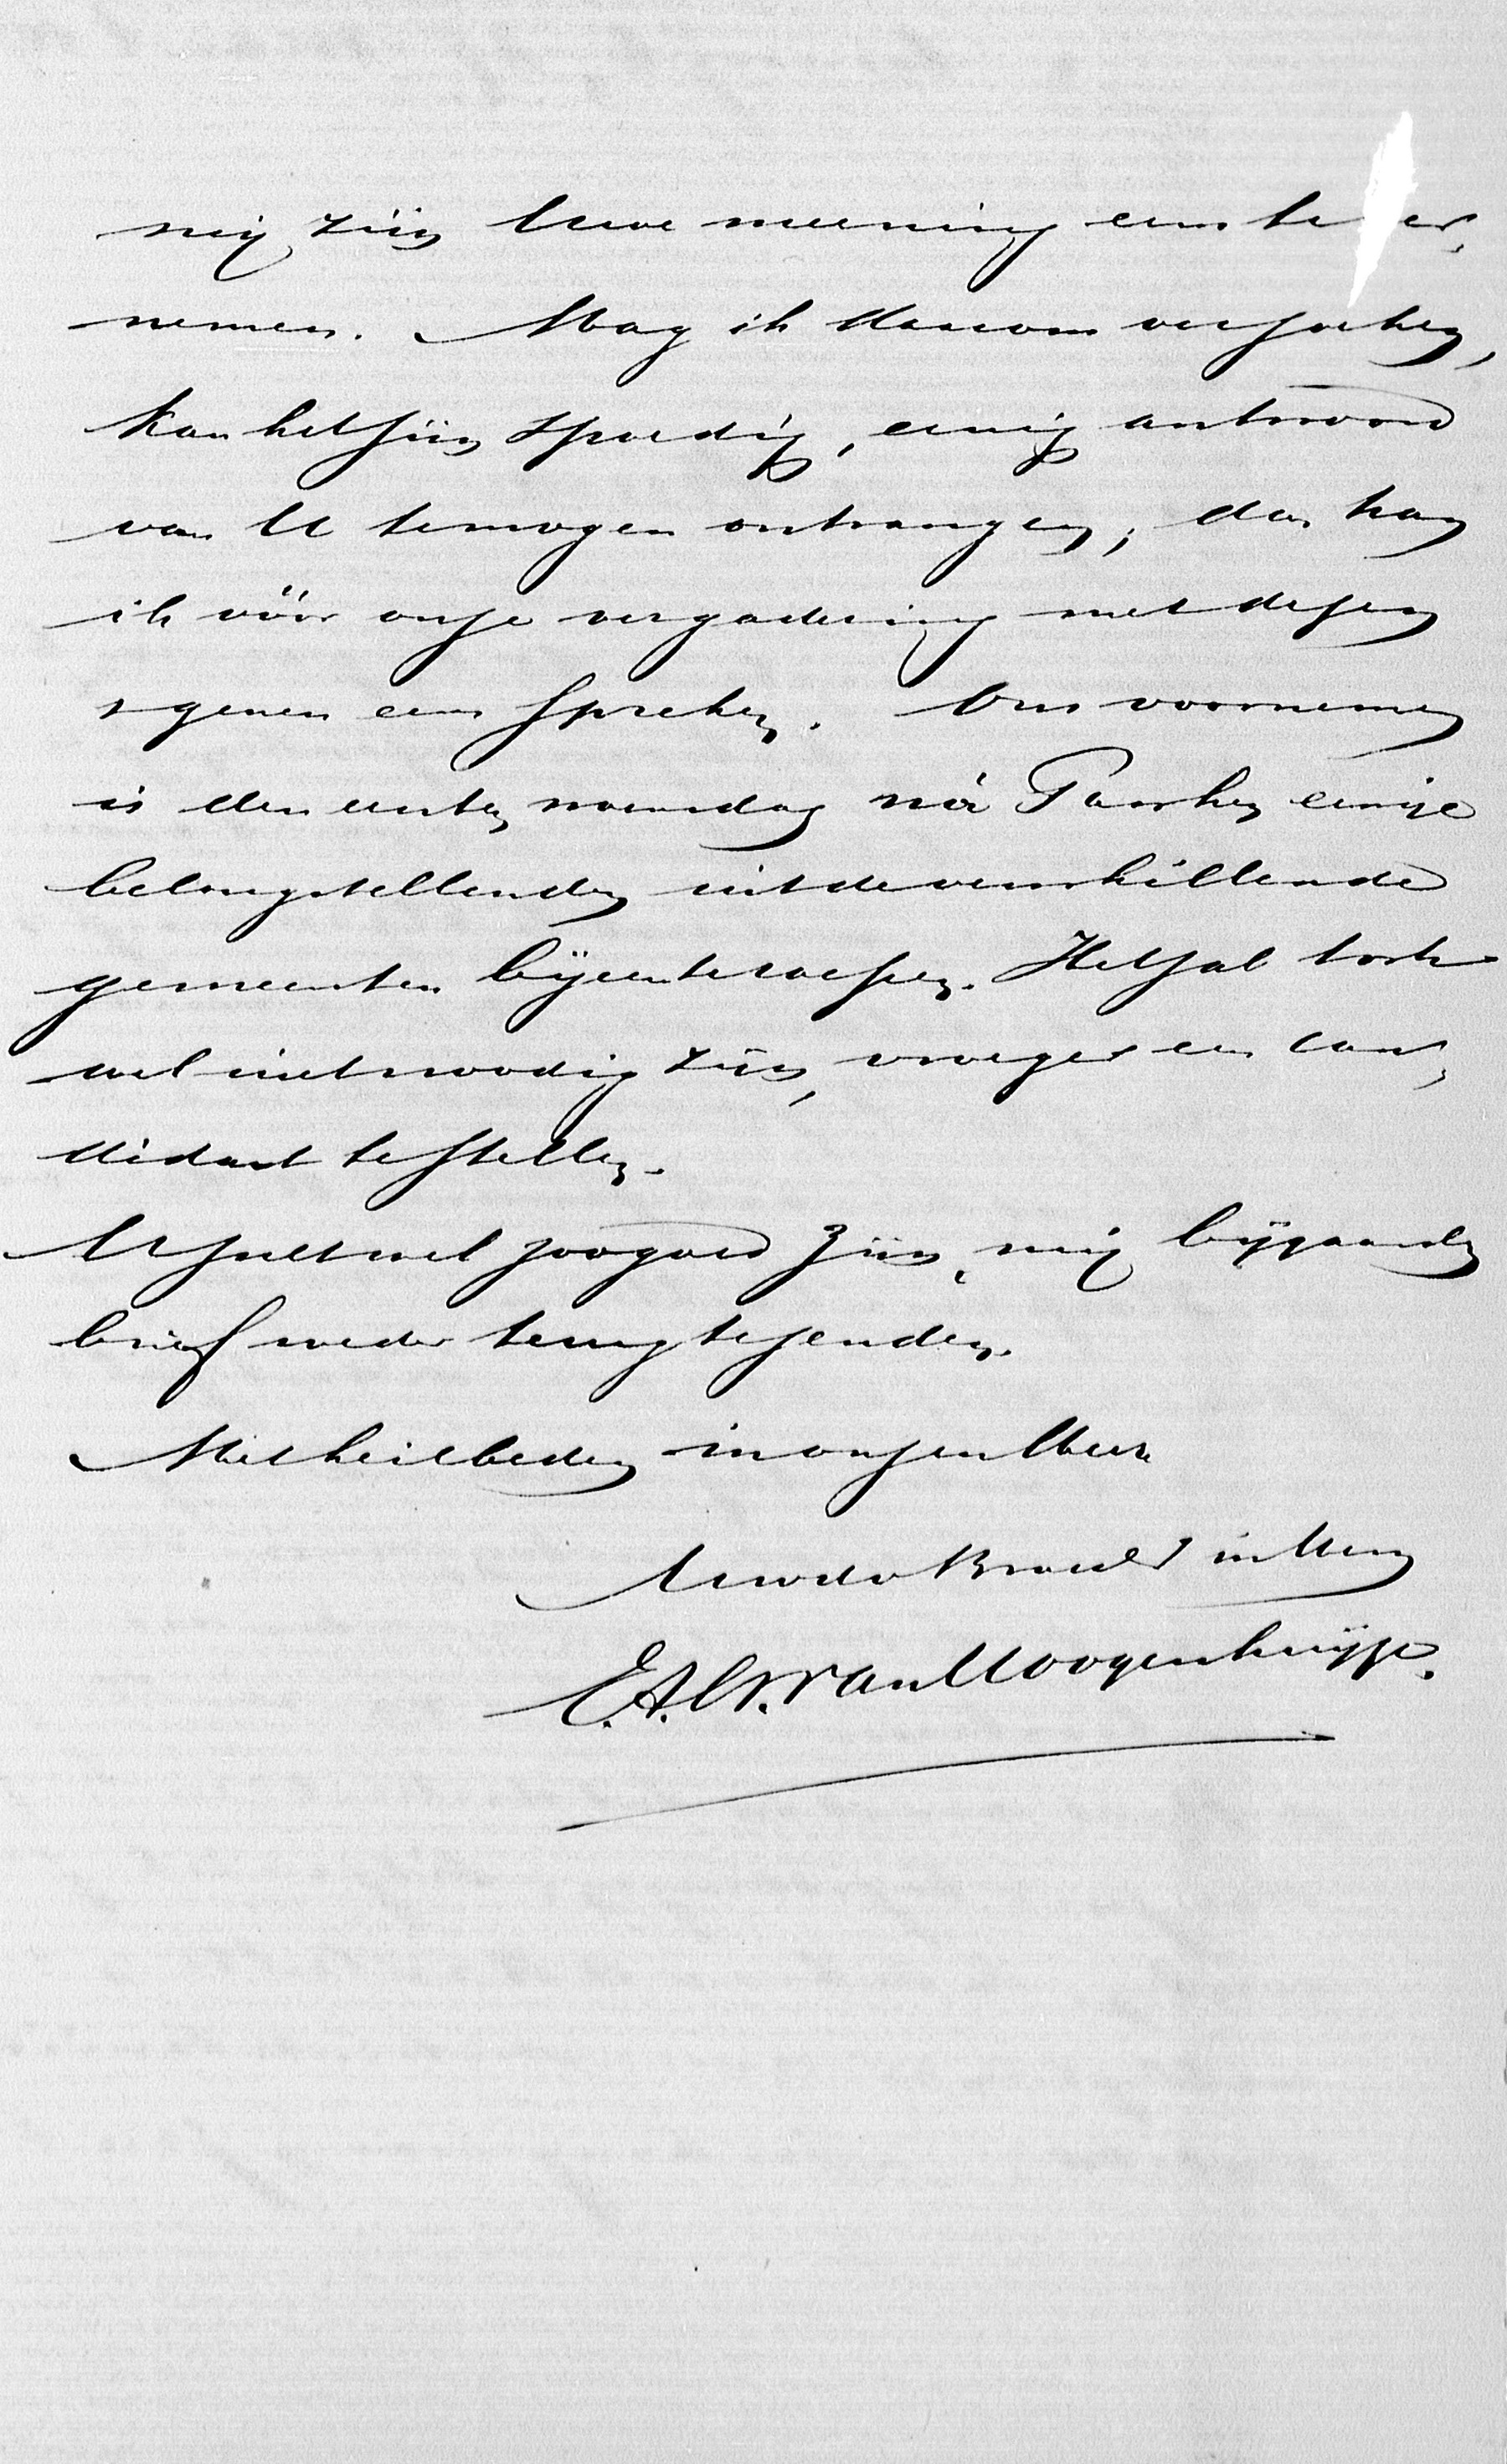 mij zijn Uwe meening eens te ver-
nemen. Mag ik daarom verzoeken,
kan het zijn spoedig, eenig antwoord
van U te mogen ontvangen; dan kan
ik vóór onze vergadering met dezen
& genen eens spreken. Ons voornemen
is den eersten woensdag ná Paschen eenige
belangstellenden uit de verschillende
gemeenten bijeenteroepen. Het zal toch
wel niet noodig zijn, vroeger een can-
didaat te stellen.
U zult wel zoo goed zijn, mij bijgaanden
brief weder terug te zenden.
Met heilbeden in onzen Heer
Uw dw Broeder in Hem
E.A.G. van Hoogenhuijze.